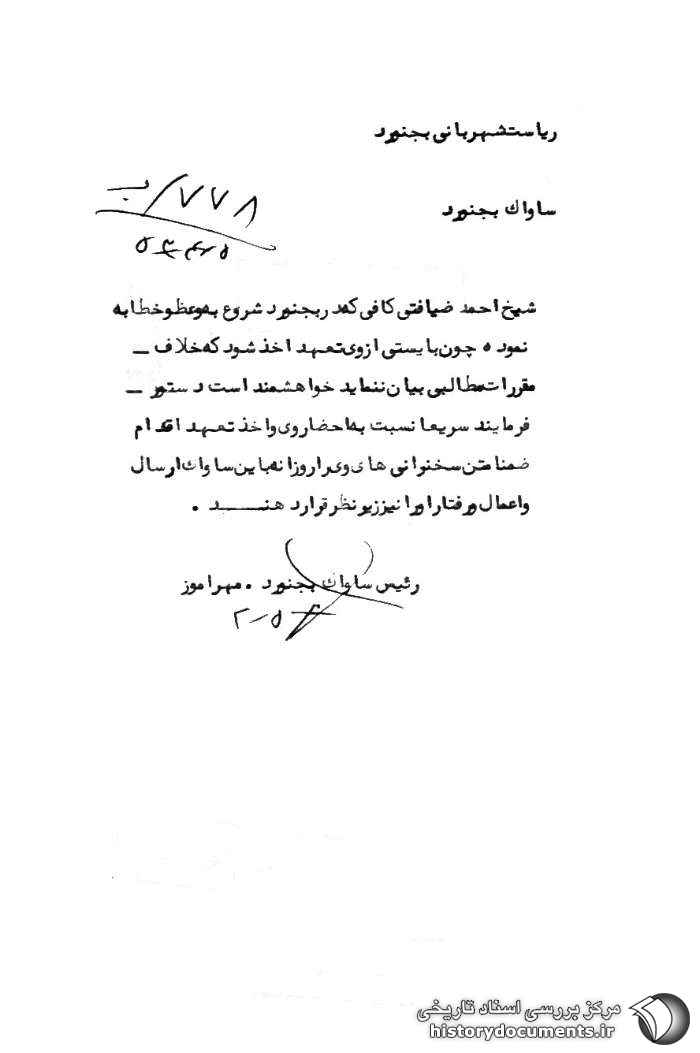 ریاست شهربانی بجنورد
ساواك بجنورد
۷۷۸/ب
شیخ احمد ضیافتی کافی که در بجنورد شروع به وعظ و خطابه
نموده چون بایستی از وی تعهد اخذ شود که خلاف ــ
مقررات مطالبی بیان ننماید خواهشمند است دستور ــ
فرمایند سریعا نسبت به احضار وی و اخذ تعهد اقدام
ضمنا متن سخنرانی های وی را روزانه باین ساواك ارسال
و اعمال و رفتار او را نیز زیر نظر قرار دهنــــد .
رئیس ساواك بجنورد . مهرآموز
مرکز بررسی اسناد تاریخی
historydocuments.ir